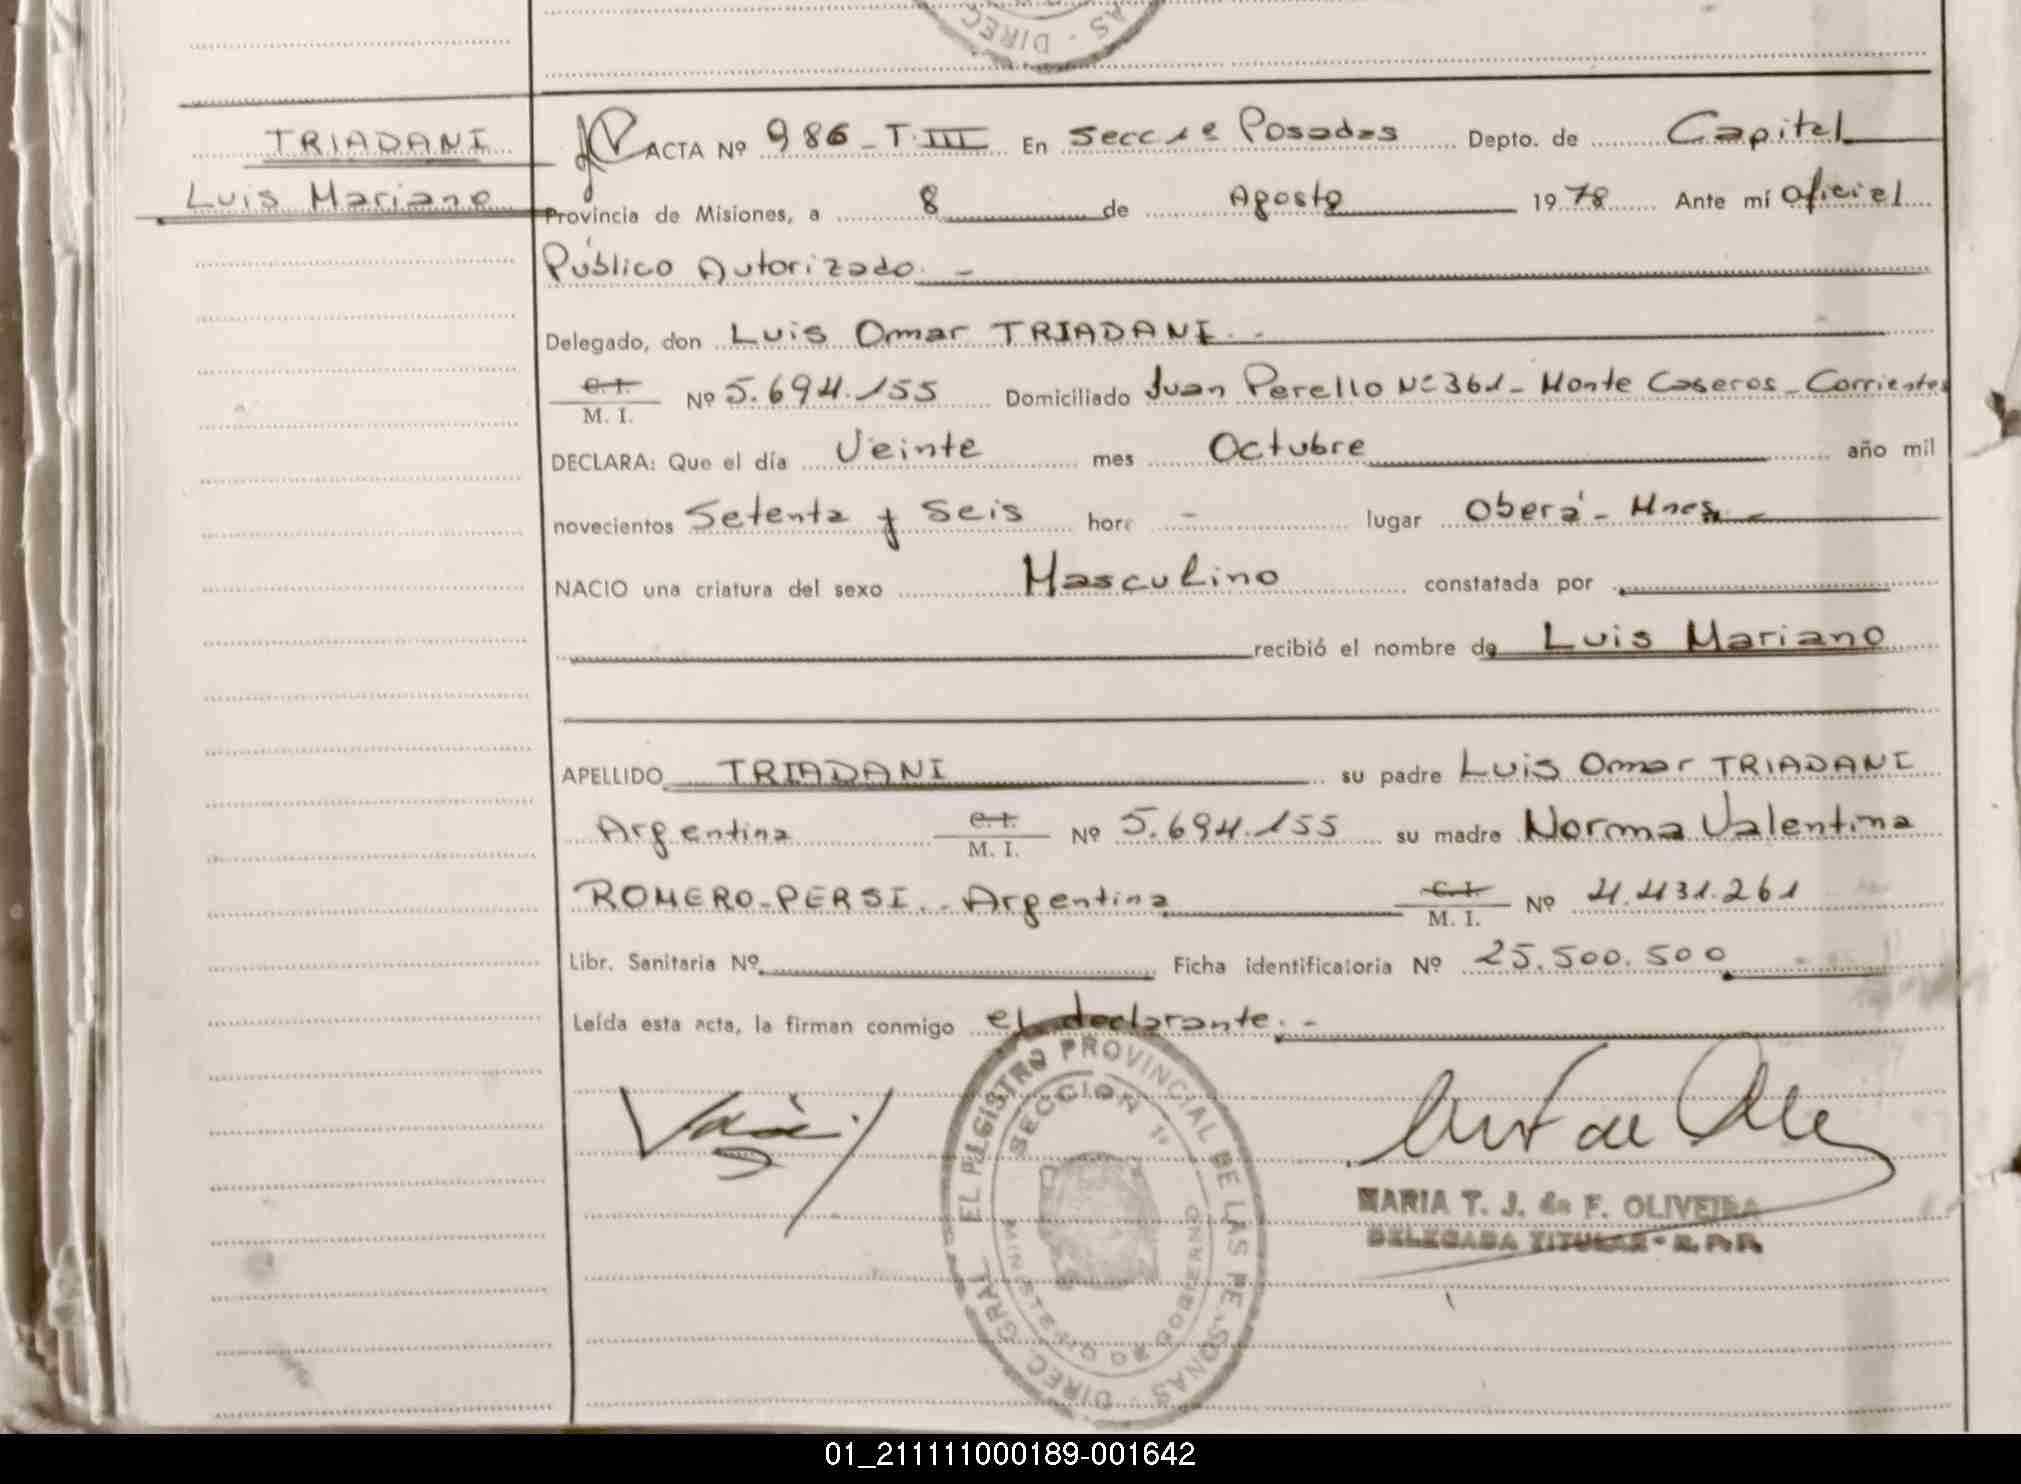 AS - DIREC
TRIADANI
Luis Mariano
ACTA Nº 986 - T. III En Secc 1ª Posadas Depto. de Capital
Provincia de Misiones, a 8 de Agosto 1978 Ante mí Oficial
Público Autorizado. -
Delegado, don Luis Omar TRIADANI. -
C. I.
M. I. Nº 5.694.155 Domiciliado Juan Perello Nº 361 - Monte Caseros - Corrientes
DECLARA: Que el día Veinte mes Octubre año mil
novecientos Setenta y Seis hora - lugar Oberá - Mnes. -
NACIO una criatura del sexo Masculino constatada por
recibió el nombre de Luis Mariano
APELLIDO TRIADANI su padre Luis Omar TRIADANI
Argentina C. I.
M. I. Nº 5.694.155 su madre Norma Valentina
ROMERO-PERSI. - Argentina C. I.
M. I. Nº 4.431.261
Libr. Sanitaria Nº Ficha identificatoria Nº 25.500.500
Leída esta acta, la firman conmigo el declarante. -
DIREC. GRAL. EL REGISTRO PROVINCIAL DE LAS PERSONAS
SECCION 1ª
MINISTERIO DE GOBIERNO
MARIA T. J. de F. OLIVEIRA
DELEGADA TITULAR - R.P.P.
01_211111000189-001642